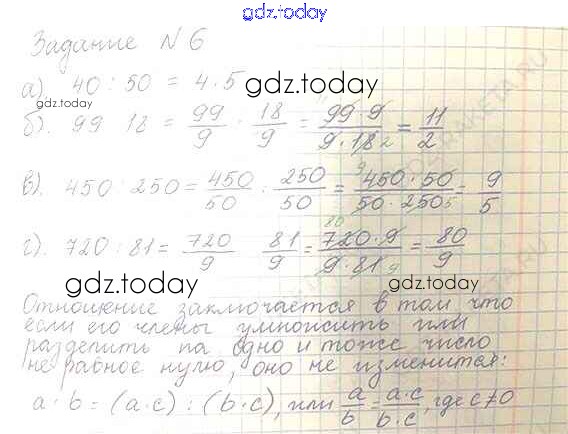 gdz.today
Задание N 6
а). 40 : 50 = 4 : 5
gdz.today
gdz.today
б). 99 18 = 99/9 : 18/9 = 99·9/9·18 2 = 11/2
в). 450 : 250 = 450/50 : 250/50 = 9 450·50/50·250 5 = 9/5
г). 720 : 81 = 720/9 81/9 = 80 720·9/9·81 9 = 80/9
gdz.today
gdz.today
Отношение заключается в том что
если его члены умножить или
разделить на одно и тоже число
не равное нулю, оно не изменится:
a · b = (a·c) : (b·c), или a/b = a·c/b·c, где c≠0